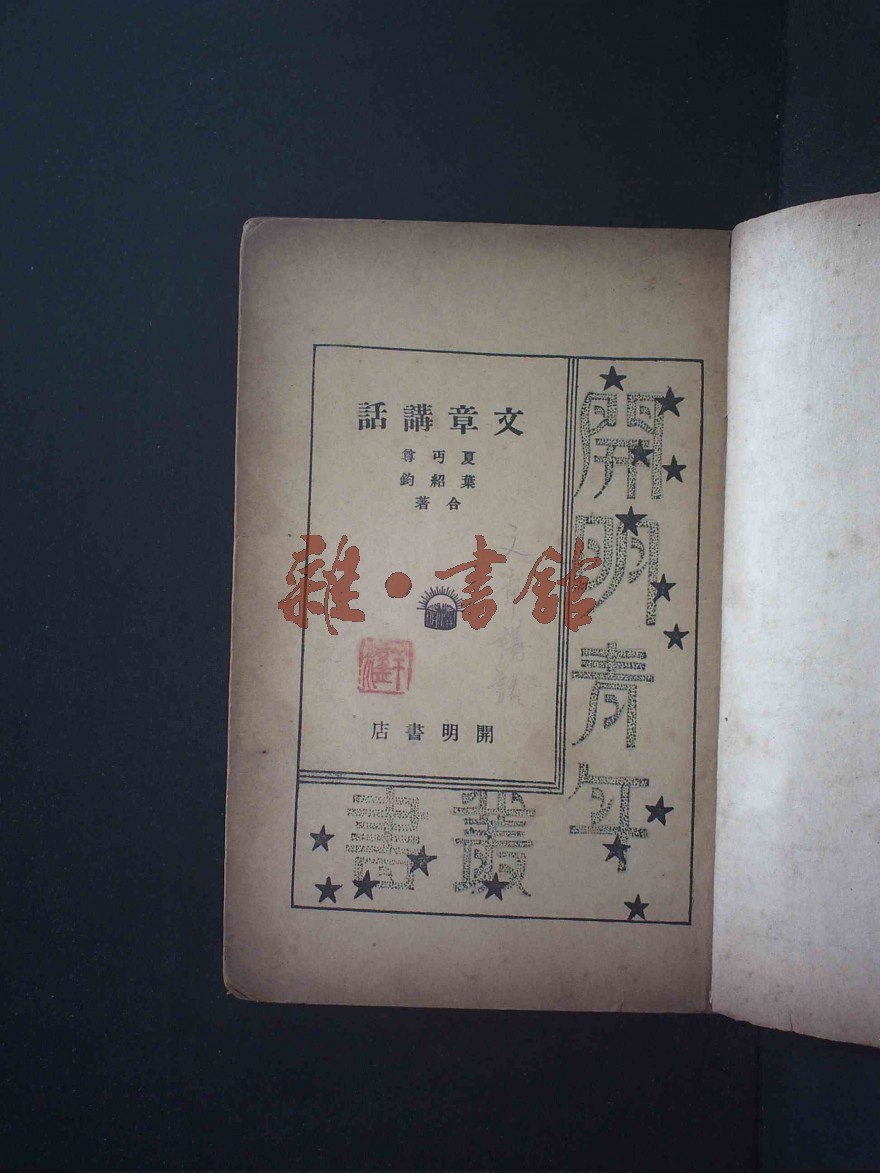 文章講話
夏丏尊
葉紹鈞
合著
開明書店
開明青年
叢書
雜·書館